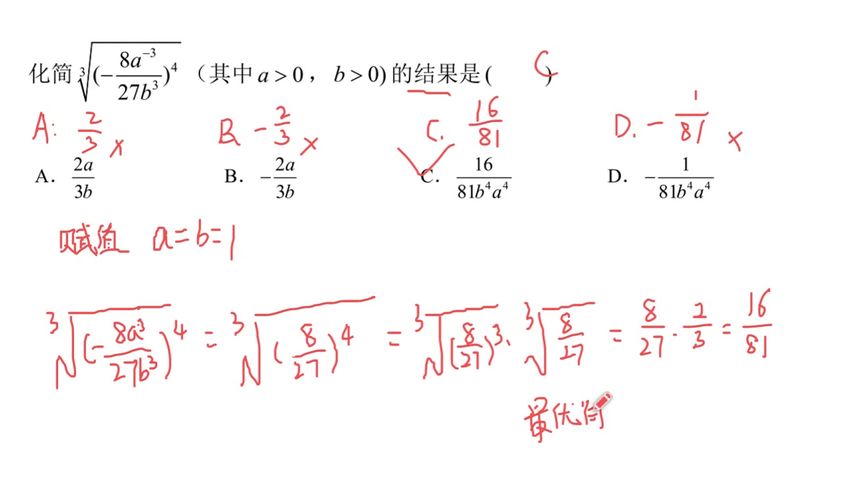 化简 ∛(-8a⁻³/27b³)⁴ （其中 a > 0， b > 0) 的结果是 ( C )
A: 2/3 × B. -2/3 × C. 16/81 D. -1/81 ×
A. 2a/3b B. -2a/3b C. 16/81b⁴a⁴ D. -1/81b⁴a⁴
赋值 a=b=1
∛(-8a³/27b³)⁴ = ∛(8/27)⁴ = ∛(8/27)³ · ∛8/27 = 8/27 · 2/3 = 16/81
最优